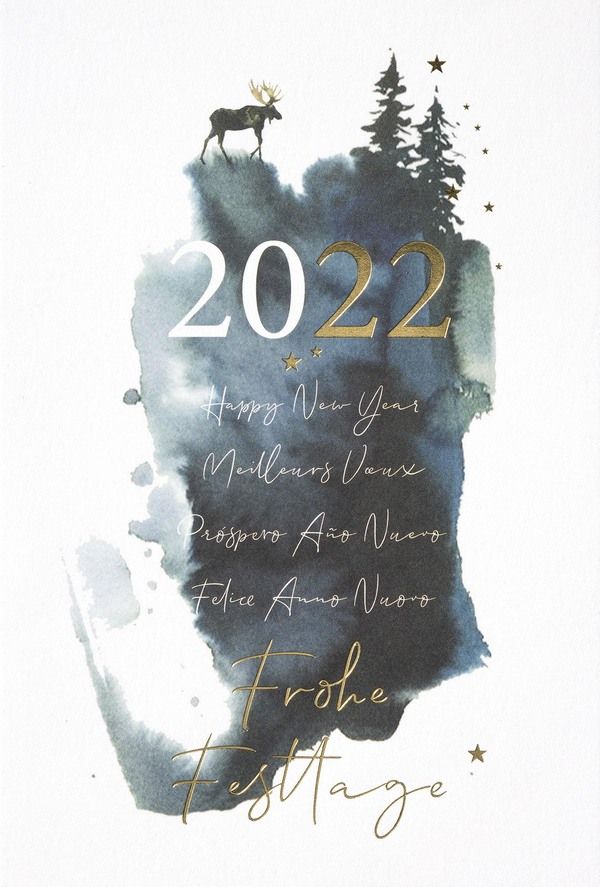 2022
Happy New Year
Meilleurs Vœux
Próspero Año Nuevo
Felice Anno Nuovo
Frohe
Festtage